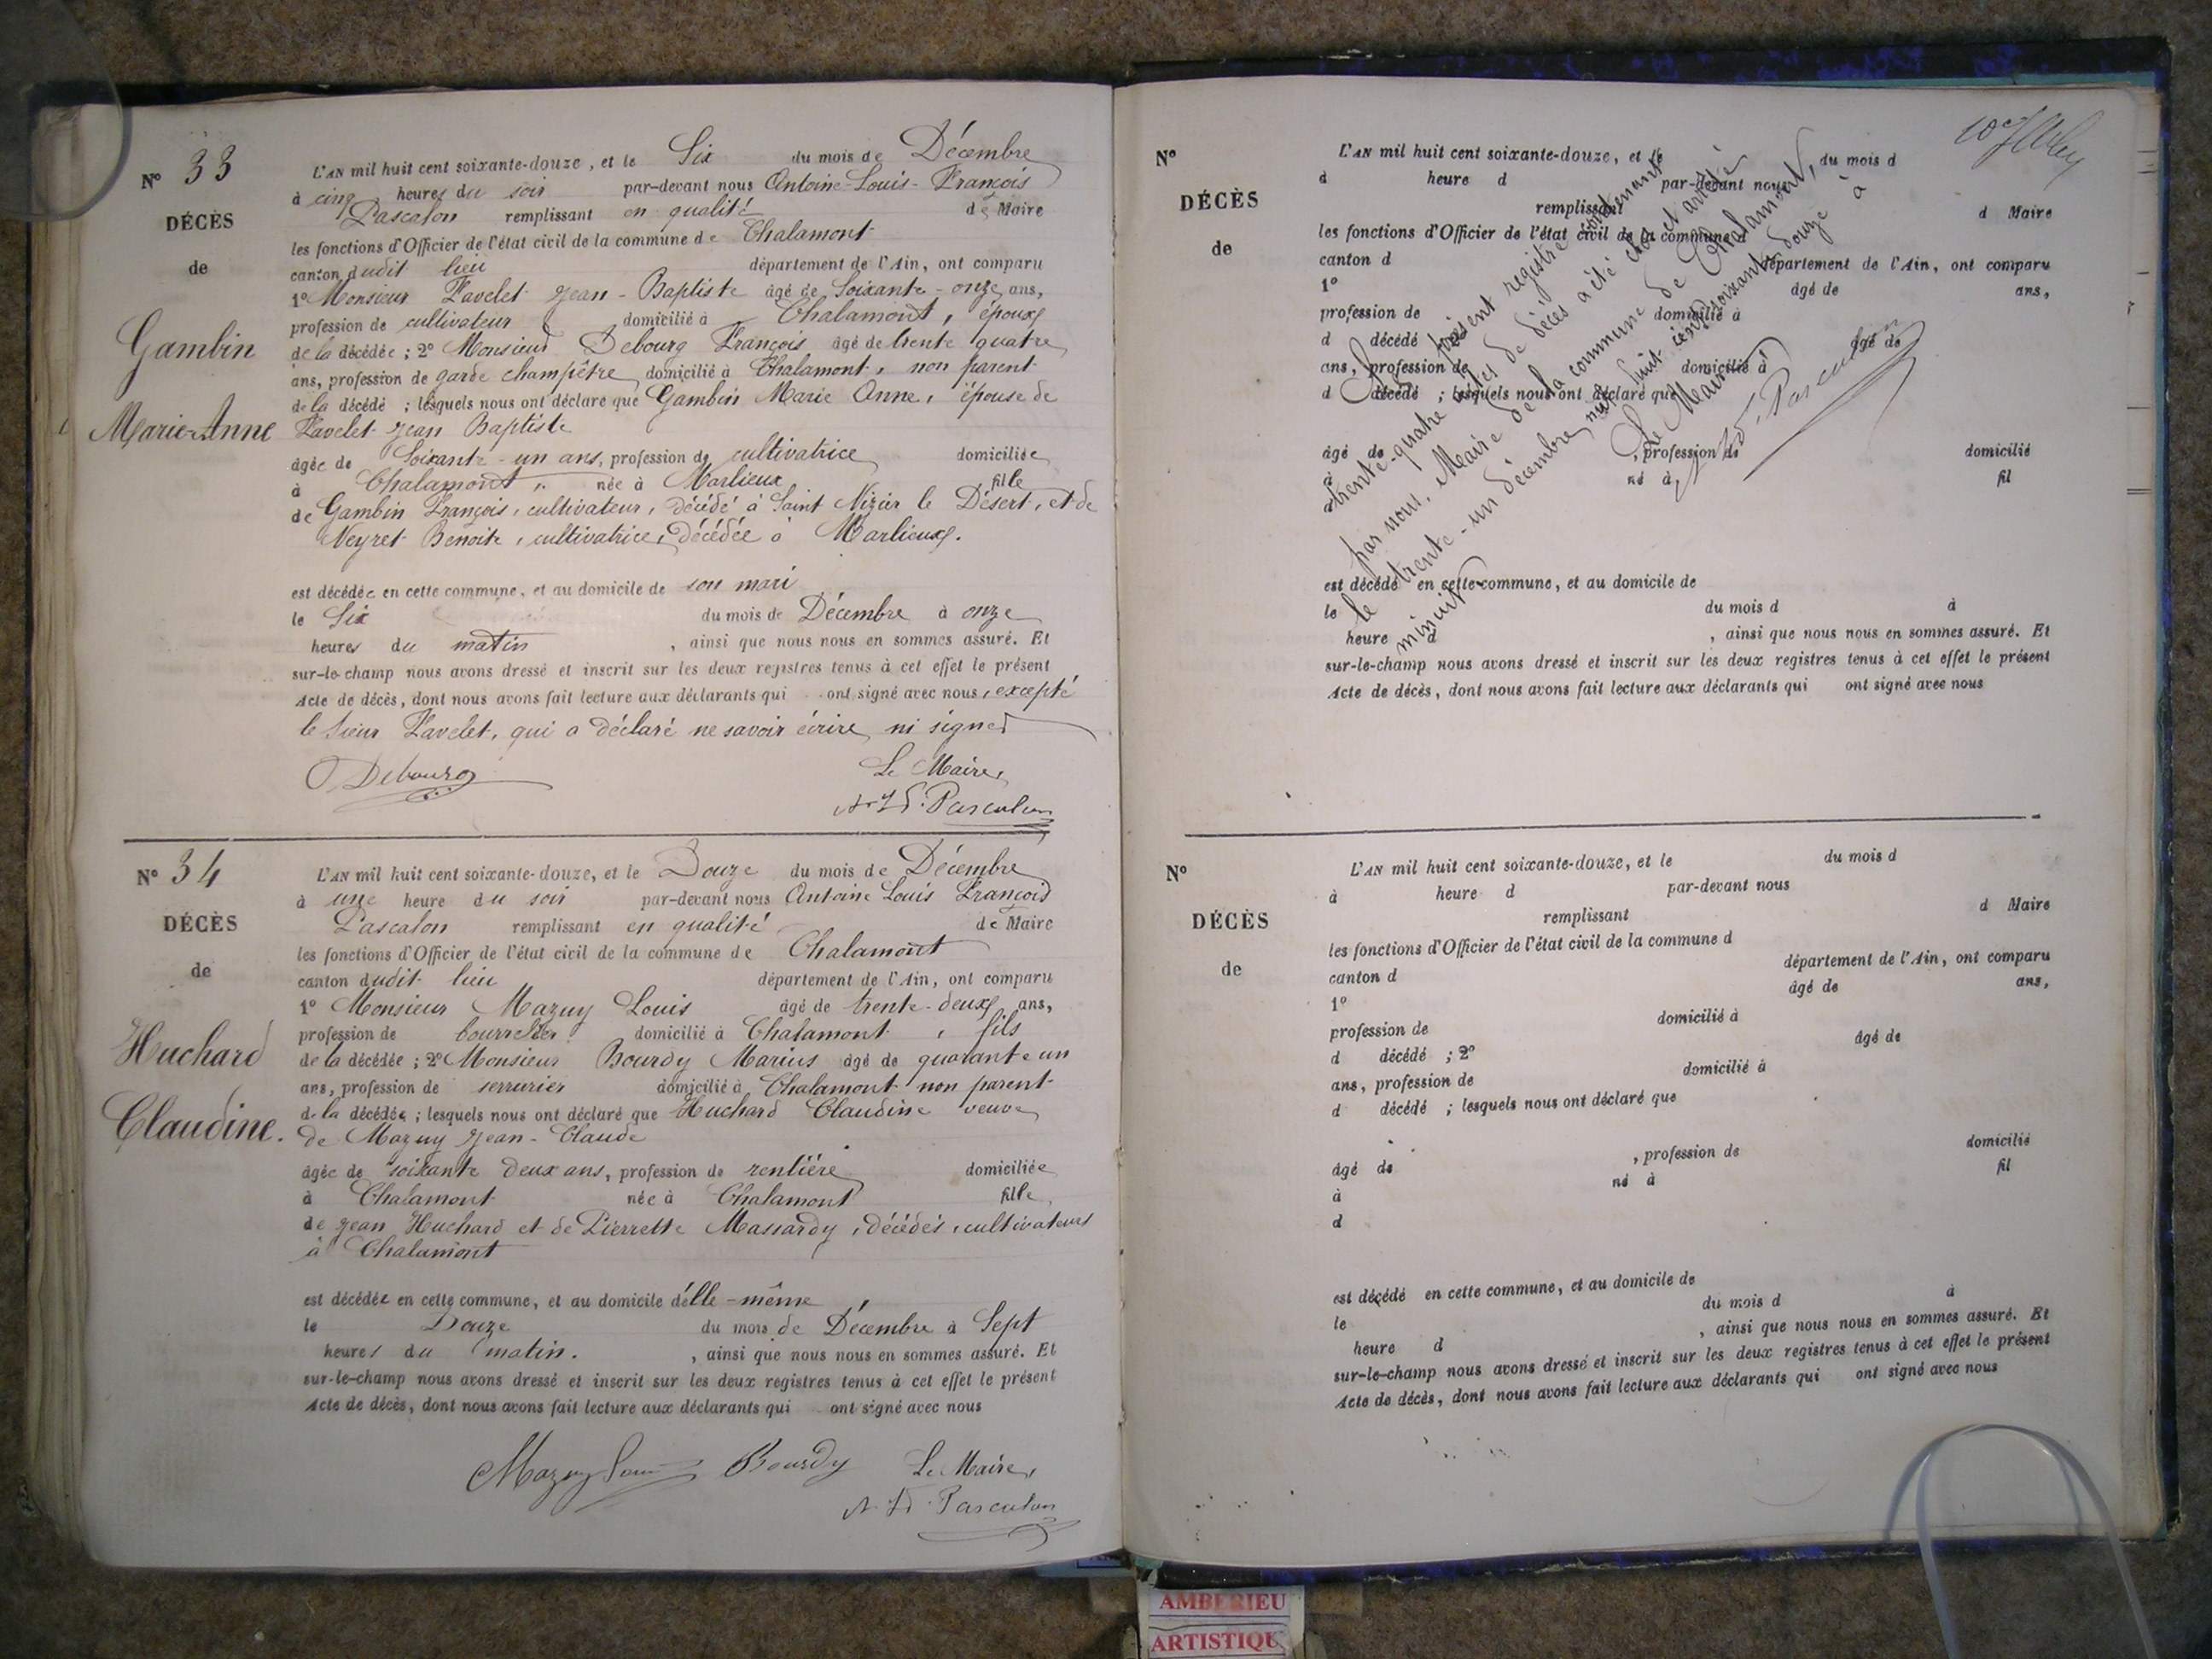 N° 33
DÉCÈS
de
Gambin
Marie-Anne
L'AN mil huit cent soixante-douze, et le Six du mois de Décembre
à cinq heures du soir par-devant nous Antoine-Louis-François
Pascalon remplissant en qualité de Maire
les fonctions d'Officier de l'état civil de la commune de Chalamont
canton dudit lieu département de l'Ain, ont comparu
1° Monsieur Favelet Jean-Baptiste âgé de Soixante-onze ans,
profession de cultivateur domicilié à Chalamont, époux
de la décédée ; 2° Monsieur Debourg François âgé de trente quatre
ans, profession de garde champêtre domicilié à Chalamont, non parent
de la décédé ; lesquels nous ont déclaré que Gambin Marie Anne, épouse de
Favelet Jean Baptiste
âgée de Soixante-un ans, profession de cultivatrice domiciliée
à Chalamont, née à Marlieux fille
de Gambin François, cultivateur, décédé à Saint Nizier le Désert, et de
Neyret Benoite, cultivatrice, décédée à Marlieux.
est décédée en cette commune, et au domicile de son mari
le Six du mois de Décembre à onze
heures du matin, ainsi que nous nous en sommes assuré. Et
sur-le-champ nous avons dressé et inscrit sur les deux registres tenus à cet effet le présent
Acte de décès, dont nous avons fait lecture aux déclarants qui ont signé avec nous, excepté
le Sieur Favelet, qui a déclaré ne savoir écrire ni signer
Debourg Le Maire,
A. L. F. Pascalon
N° 34
DÉCÈS
de
Huchard
Claudine.
L'AN mil huit cent soixante-douze, et le Douze du mois de Décembre
à une heure du soir par-devant nous Antoine Louis François
Pascalon remplissant en qualité de Maire
les fonctions d'Officier de l'état civil de la commune de Chalamont
canton dudit lieu département de l'Ain, ont comparu
1° Monsieur Mazuy Louis âgé de trente-deux ans,
profession de bourrelier domicilié à Chalamont, fils
de la décédée ; 2° Monsieur Bourdy Marius âgé de quarante un
ans, profession de serrurier domicilié à Chalamont non parent
de la décédée ; lesquels nous ont déclaré que Huchard Claudine veuve
de Mazuy Jean-Claude
âgée de soixante deux ans, profession de rentière domiciliée
à Chalamont née à Chalamont fille
de Jean Huchard et de Pierrette Massardy, décédés, cultivateurs
à Chalamont
est décédée en cette commune, et au domicile d'elle-même,
le Douze du mois de Décembre à Sept
heures du matin., ainsi que nous nous en sommes assuré. Et
sur-le-champ nous avons dressé et inscrit sur les deux registres tenus à cet effet le présent
Acte de décès, dont nous avons fait lecture aux déclarants qui ont signé avec nous
Mazuy Louis Bourdy Le Maire,
Pascalon
N°
DÉCÈS
de
L'AN mil huit cent soixante-douze, et le du mois d
à heure d par-devant nous
remplissant d Maire
les fonctions d'Officier de l'état civil de la commune d
canton d département de l'Ain, ont comparu
1° âgé de ans,
profession de domicilié à
d décédé ; 2° âgé de
ans, profession de domicilié à
d décédé ; lesquels nous ont déclaré que
âgé de , profession de domicilié
à né à fil
d
est décédé en cette commune, et au domicile de
le du mois d à
heure d , ainsi que nous nous en sommes assuré. Et
sur-le-champ nous avons dressé et inscrit sur les deux registres tenus à cet effet le présent
Acte de décès, dont nous avons fait lecture aux déclarants qui ont signé avec nous
Le présent registre contenant
trente-quatre actes de décès a été clos et arrêté
par nous, Maire de la commune de Chalamont,
le trente-un décembre mil huit cent soixante douze à
minuit
Le Maire
Pascalon
N°
DÉCÈS
de
L'AN mil huit cent soixante-douze, et le du mois d
à heure d par-devant nous
remplissant d Maire
les fonctions d'Officier de l'état civil de la commune d
canton d département de l'Ain, ont comparu
1° âgé de ans,
profession de domicilié à
d décédé ; 2° âgé de
ans, profession de domicilié à
d décédé ; lesquels nous ont déclaré que
âgé de , profession de domicilié
à né à fil
d
est décédé en cette commune, et au domicile de
le du mois d à
heure d , ainsi que nous nous en sommes assuré. Et
sur-le-champ nous avons dressé et inscrit sur les deux registres tenus à cet effet le présent
Acte de décès, dont nous avons fait lecture aux déclarants qui ont signé avec nous
AMBERIEU
ARTISTIQU